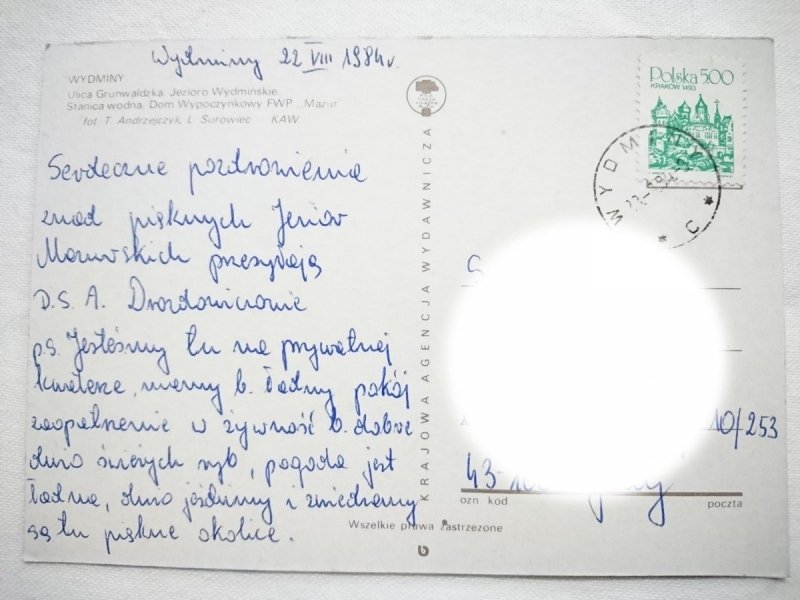 Wydminy 22 VIII 1984r.
WYDMINY
Ulica Grunwaldzka. Jezioro Wydmińskie.
Stanica wodna. Dom Wypoczynkowy FWP „Mazur"
fot. T. Andrzejczyk, L. Surowiec — KAW
Serdeczne pozdrowienia
znad pięknych Jezior
Mazurskich przesyłają
D.S.A. Drozdowiczowie
p.s. Jesteśmy tu na prywatnej
kwaterze, mamy b. ładny pokój
zaopatrzenie w żywność b. dobre
dużo świeżych ryb, pogoda jest
ładna, dużo jeździmy i zwiedzamy
są tu piękne okolice.
KRAJOWA AGENCJA WYDAWNICZA
Polska 5.00
KRAKÓW 1493
WYDMINY
C
10/253
43-10
ozn. kod
poczta
Wszelkie prawa zastrzeżone